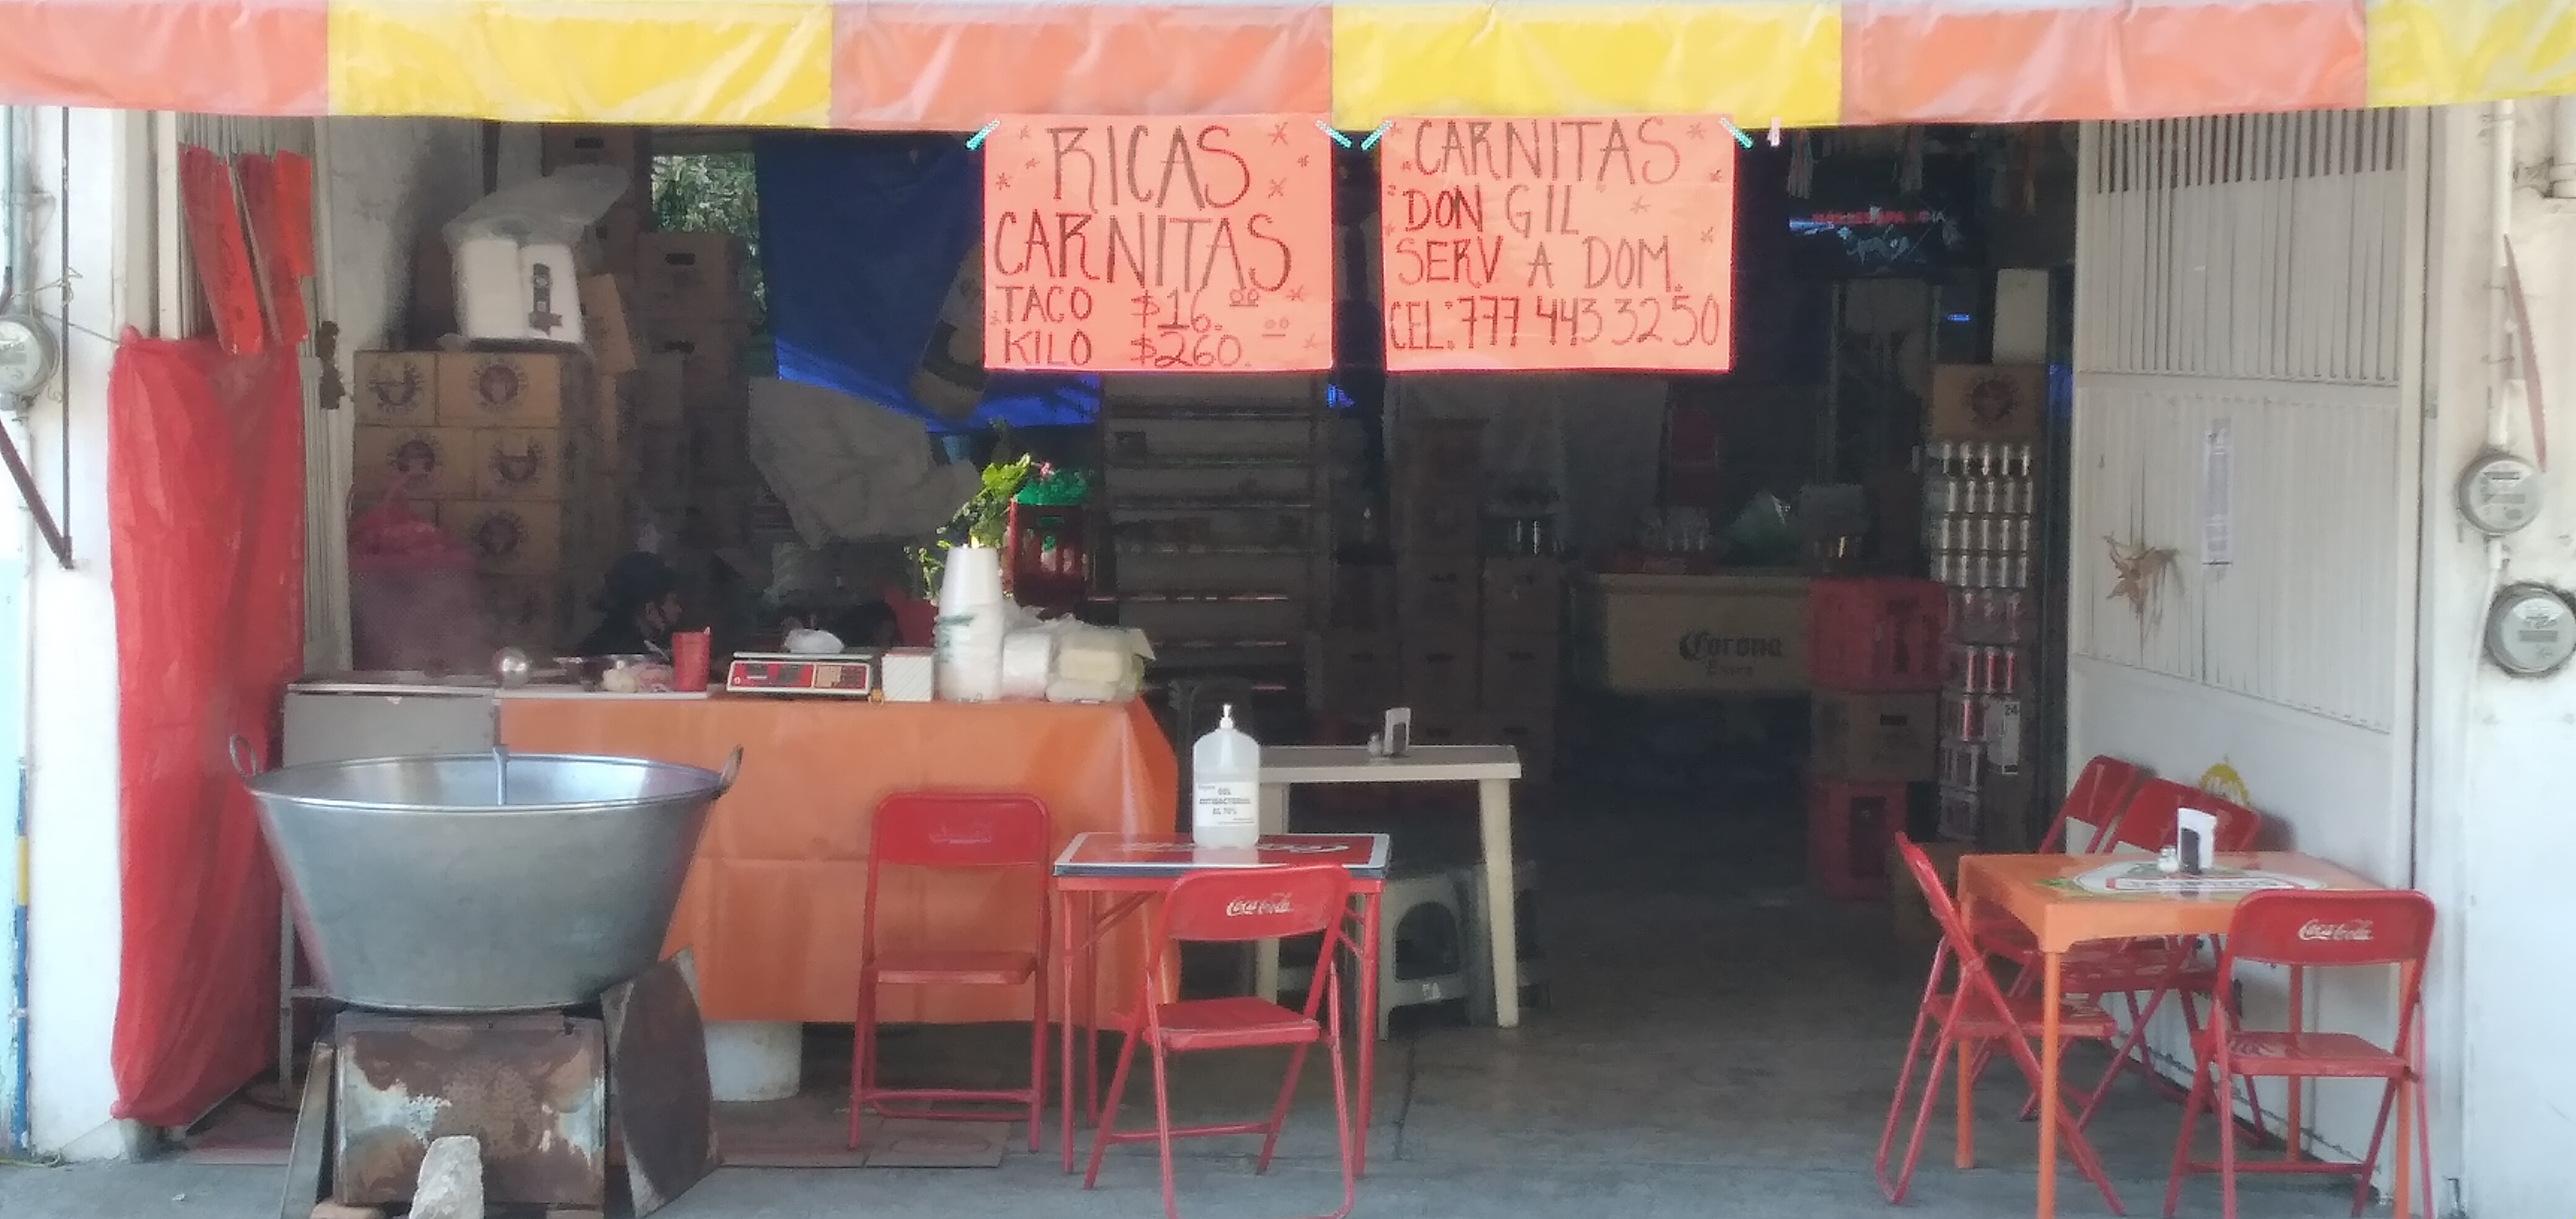 RICAS
CARNITAS
TACO $16.00
KILO $260.00
CARNITAS
DON GIL
SERV A DOM.
CEL: 777 443 3250
Corona
Extra
GEL
ANTIBACTERIAL
AL 70%
Coca-Cola
Coca-Cola
24